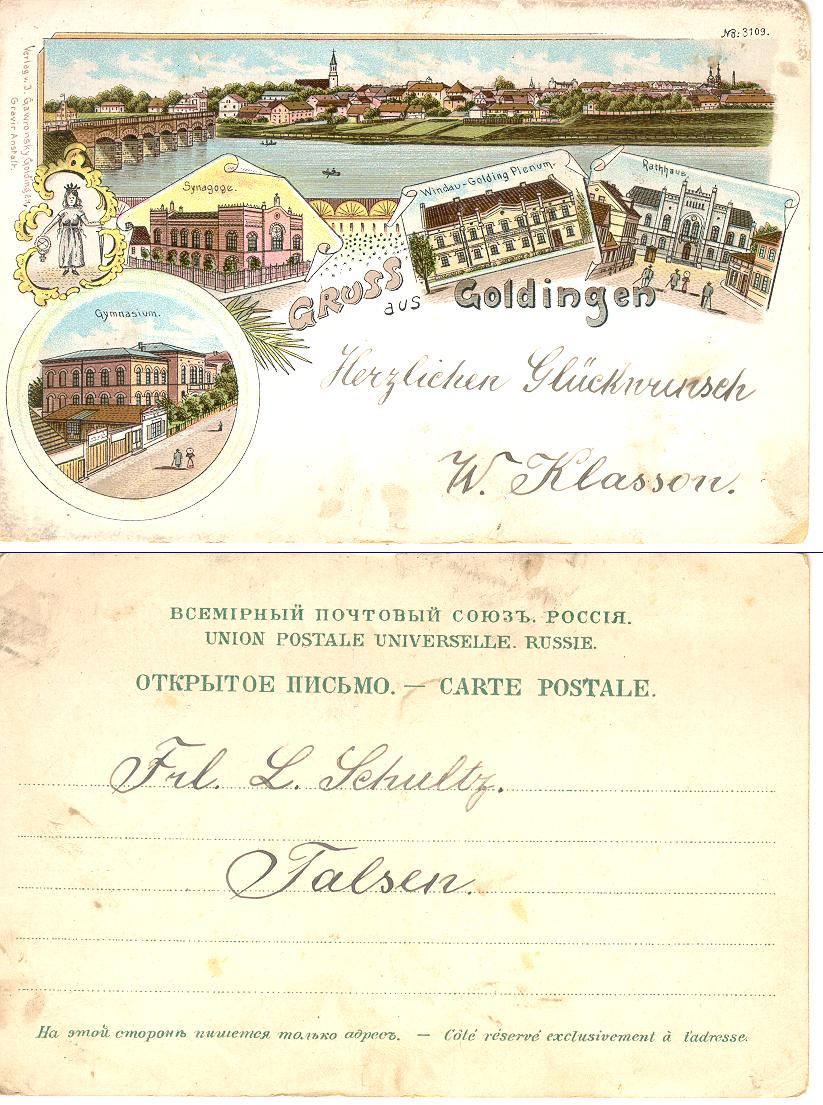 №: 3109.
Verlag v. J. Gawronsky, Goldingen,
Gravir Anstalt.
Synagoge.
Windau-Golding Plenum.
Rathhaus.
GRUSS aus Goldingen
Gymnasium.
Herzlichen Glückwunsch
W. Klasson.
ВСЕМІРНЫЙ ПОЧТОВЫЙ СОЮЗЪ. РОССІЯ.
UNION POSTALE UNIVERSELLE. RUSSIE.
ОТКРЫТОЕ ПИСЬМО. — CARTE POSTALE.
Frl. L. Schultz.
Talsen.
На этой сторонѣ пишется только адресъ. — Côté réservé exclusivement à l'adresse.